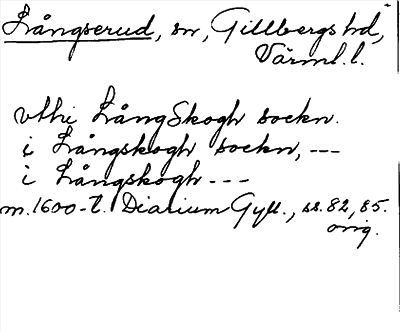 Långserud, sn, Gillbergs hd,
Värml. l.
vthi LångSkogh sockn.
i Långskogh sockn, ---
i Långskogh ---
m. 1600-t. Diarium Gyll., ss. 82, 85.
orig.